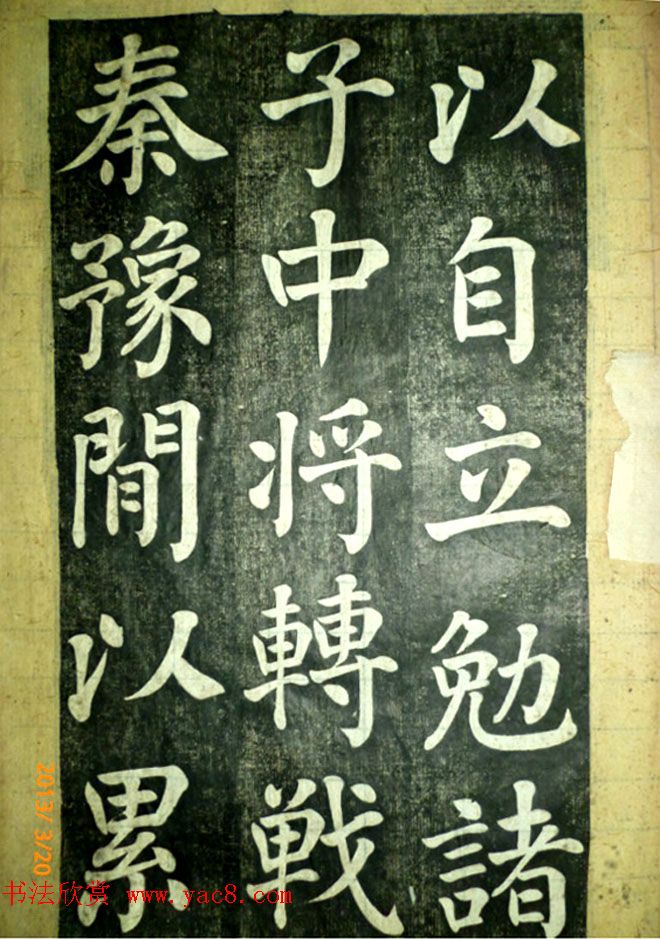 以自立勉諸
子中将轉戦
秦豫間以累
2013/3/20
书法欣赏 www.yac8.com